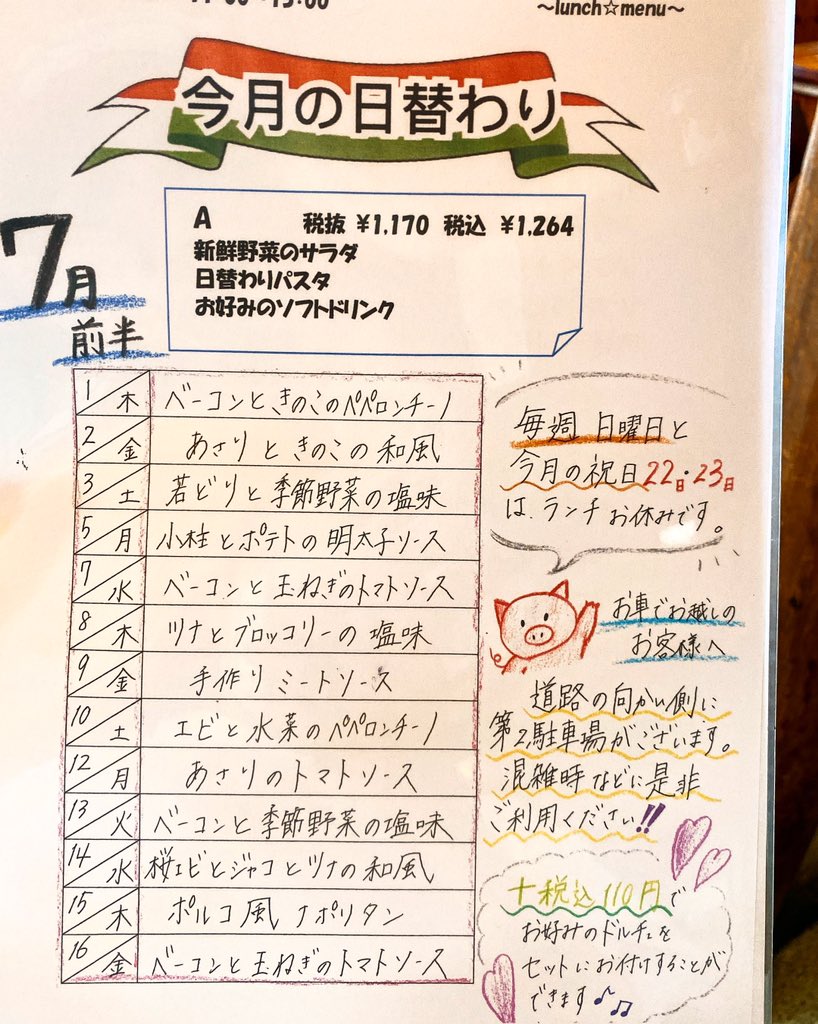 〜lunch☆menu〜
今月の日替わり
A 税抜 ¥1.170 税込 ¥1.264
新鮮野菜のサラダ
日替わりパスタ
お好みのソフトドリンク
7月
前半
1/木 ベーコンときのこのペペロンチーノ
2/金 あさりときのこの和風
3/土 若どりと季節野菜の塩味
5/月 小柱とポテトの明太子ソース
7/水 ベーコンと玉ねぎのトマトソース
8/木 ツナとブロッコリーの塩味
9/金 手作りミートソース
10/土 エビと水菜のペペロンチーノ
12/月 あさりのトマトソース
13/火 ベーコンと季節野菜の塩味
14/水 桜エビとジャコとツナの和風
15/木 ポルコ風ナポリタン
16/金 ベーコンと玉ねぎのトマトソース
毎週 日曜日と
今月の祝日22日・23日
は、ランチお休みです。
お車でお越しの
お客様へ
道路の向かい側に
第2駐車場がございます。
混雑時などに是非
ご利用ください!!
+税込110円で
お好みのドルチェを
セットにお付けすることが
できます♪♫